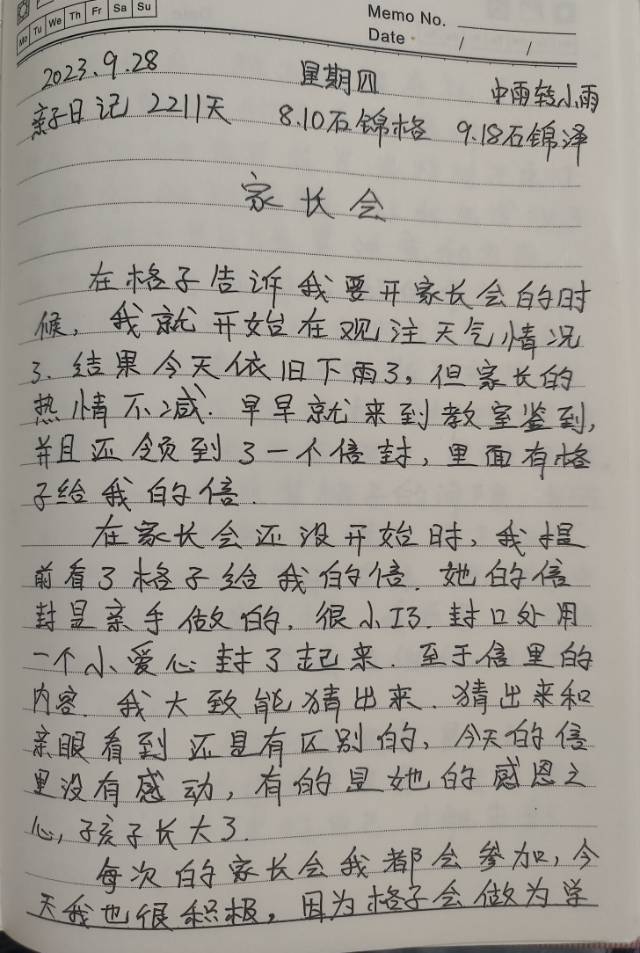 Mo Tu We Th Fr Sa Su
Memo No.
Date / /
2023.9.28 星期四 中雨转小雨
亲子日记 2211天 8.10石锦格 9.18石锦泽
家长会
在格子告诉我要开家长会的时
候，我就开始在观注天气情况
了.结果今天依旧下雨了，但家长的
热情不减.早早就来到教室鉴到，
并且还领到了一个信封，里面有格
子给我的信.
在家长会还没开始时，我提
前看了格子给我的信.她的信
封是亲手做的，很小巧.封口处用
一个小爱心封了起来.至于信里的
内容.我大致能猜出来.猜出来和
亲眼看到还是有区别的，今天的信
里没有感动，有的是她的感恩之
心，孩子长大了.
每次的家长会我都会参加，今
天我也很积极，因为格子会做为学